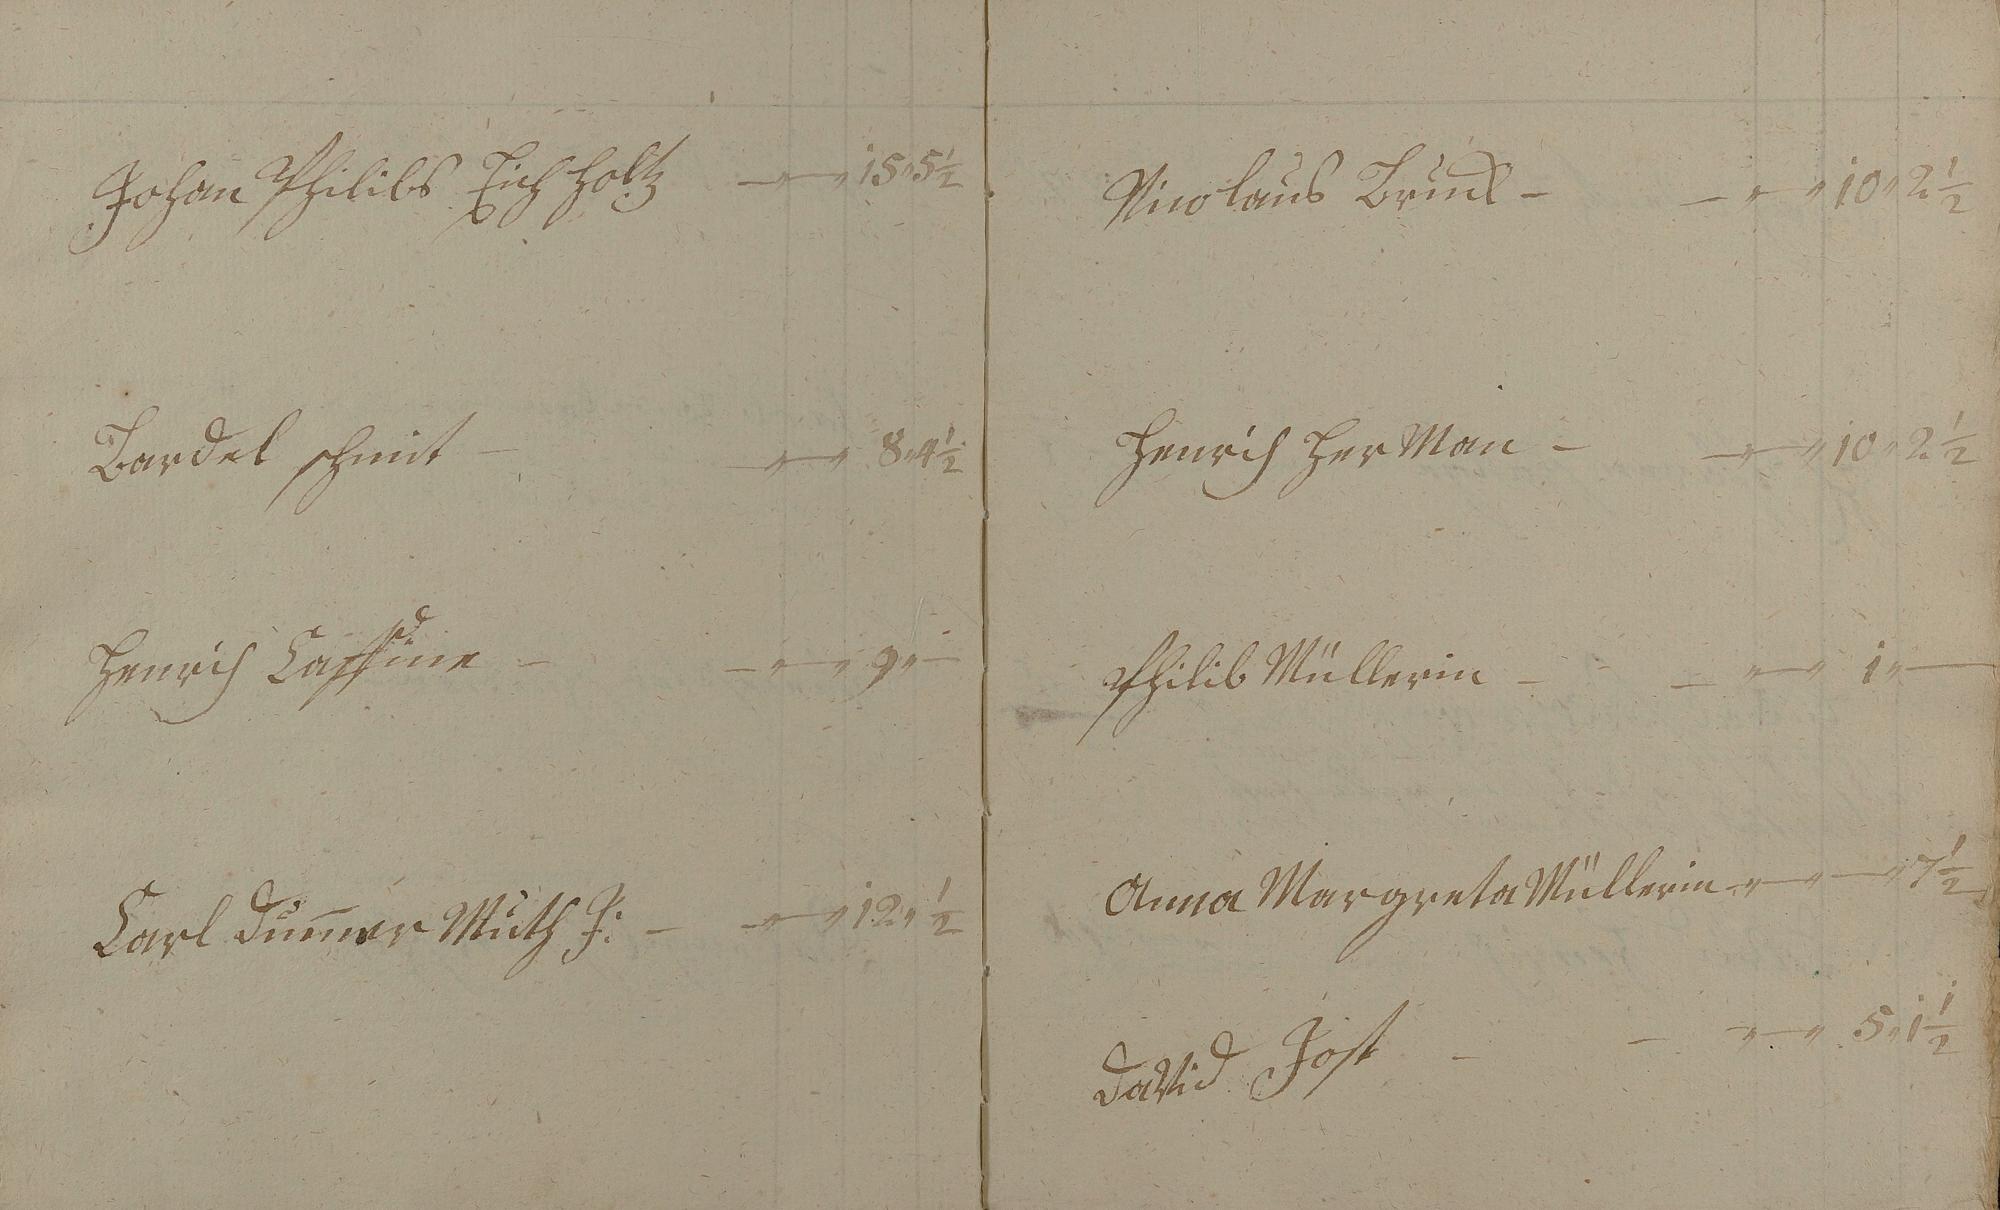 Johan Philibs Eich holtz — „ — „ 15 „ 5 ½
Bardel schmit — — „ — „ 8 „ 4 ½
Henrich — — „ — „ 9 „ —
Carl Dum̅er Muth J: — — „ — „ 12 „ ½
Nicolaus — — „ — „ 10 „ 2 ½
Henrich Her Man — — „ — „ 10 „ 2 ½
Philib Müllerin — — „ — „ 1 „ —
Anna Margreta Müllerin — „ — „ — „ 7 ½
David Jost — — „ — „ 5 „ 1 ½